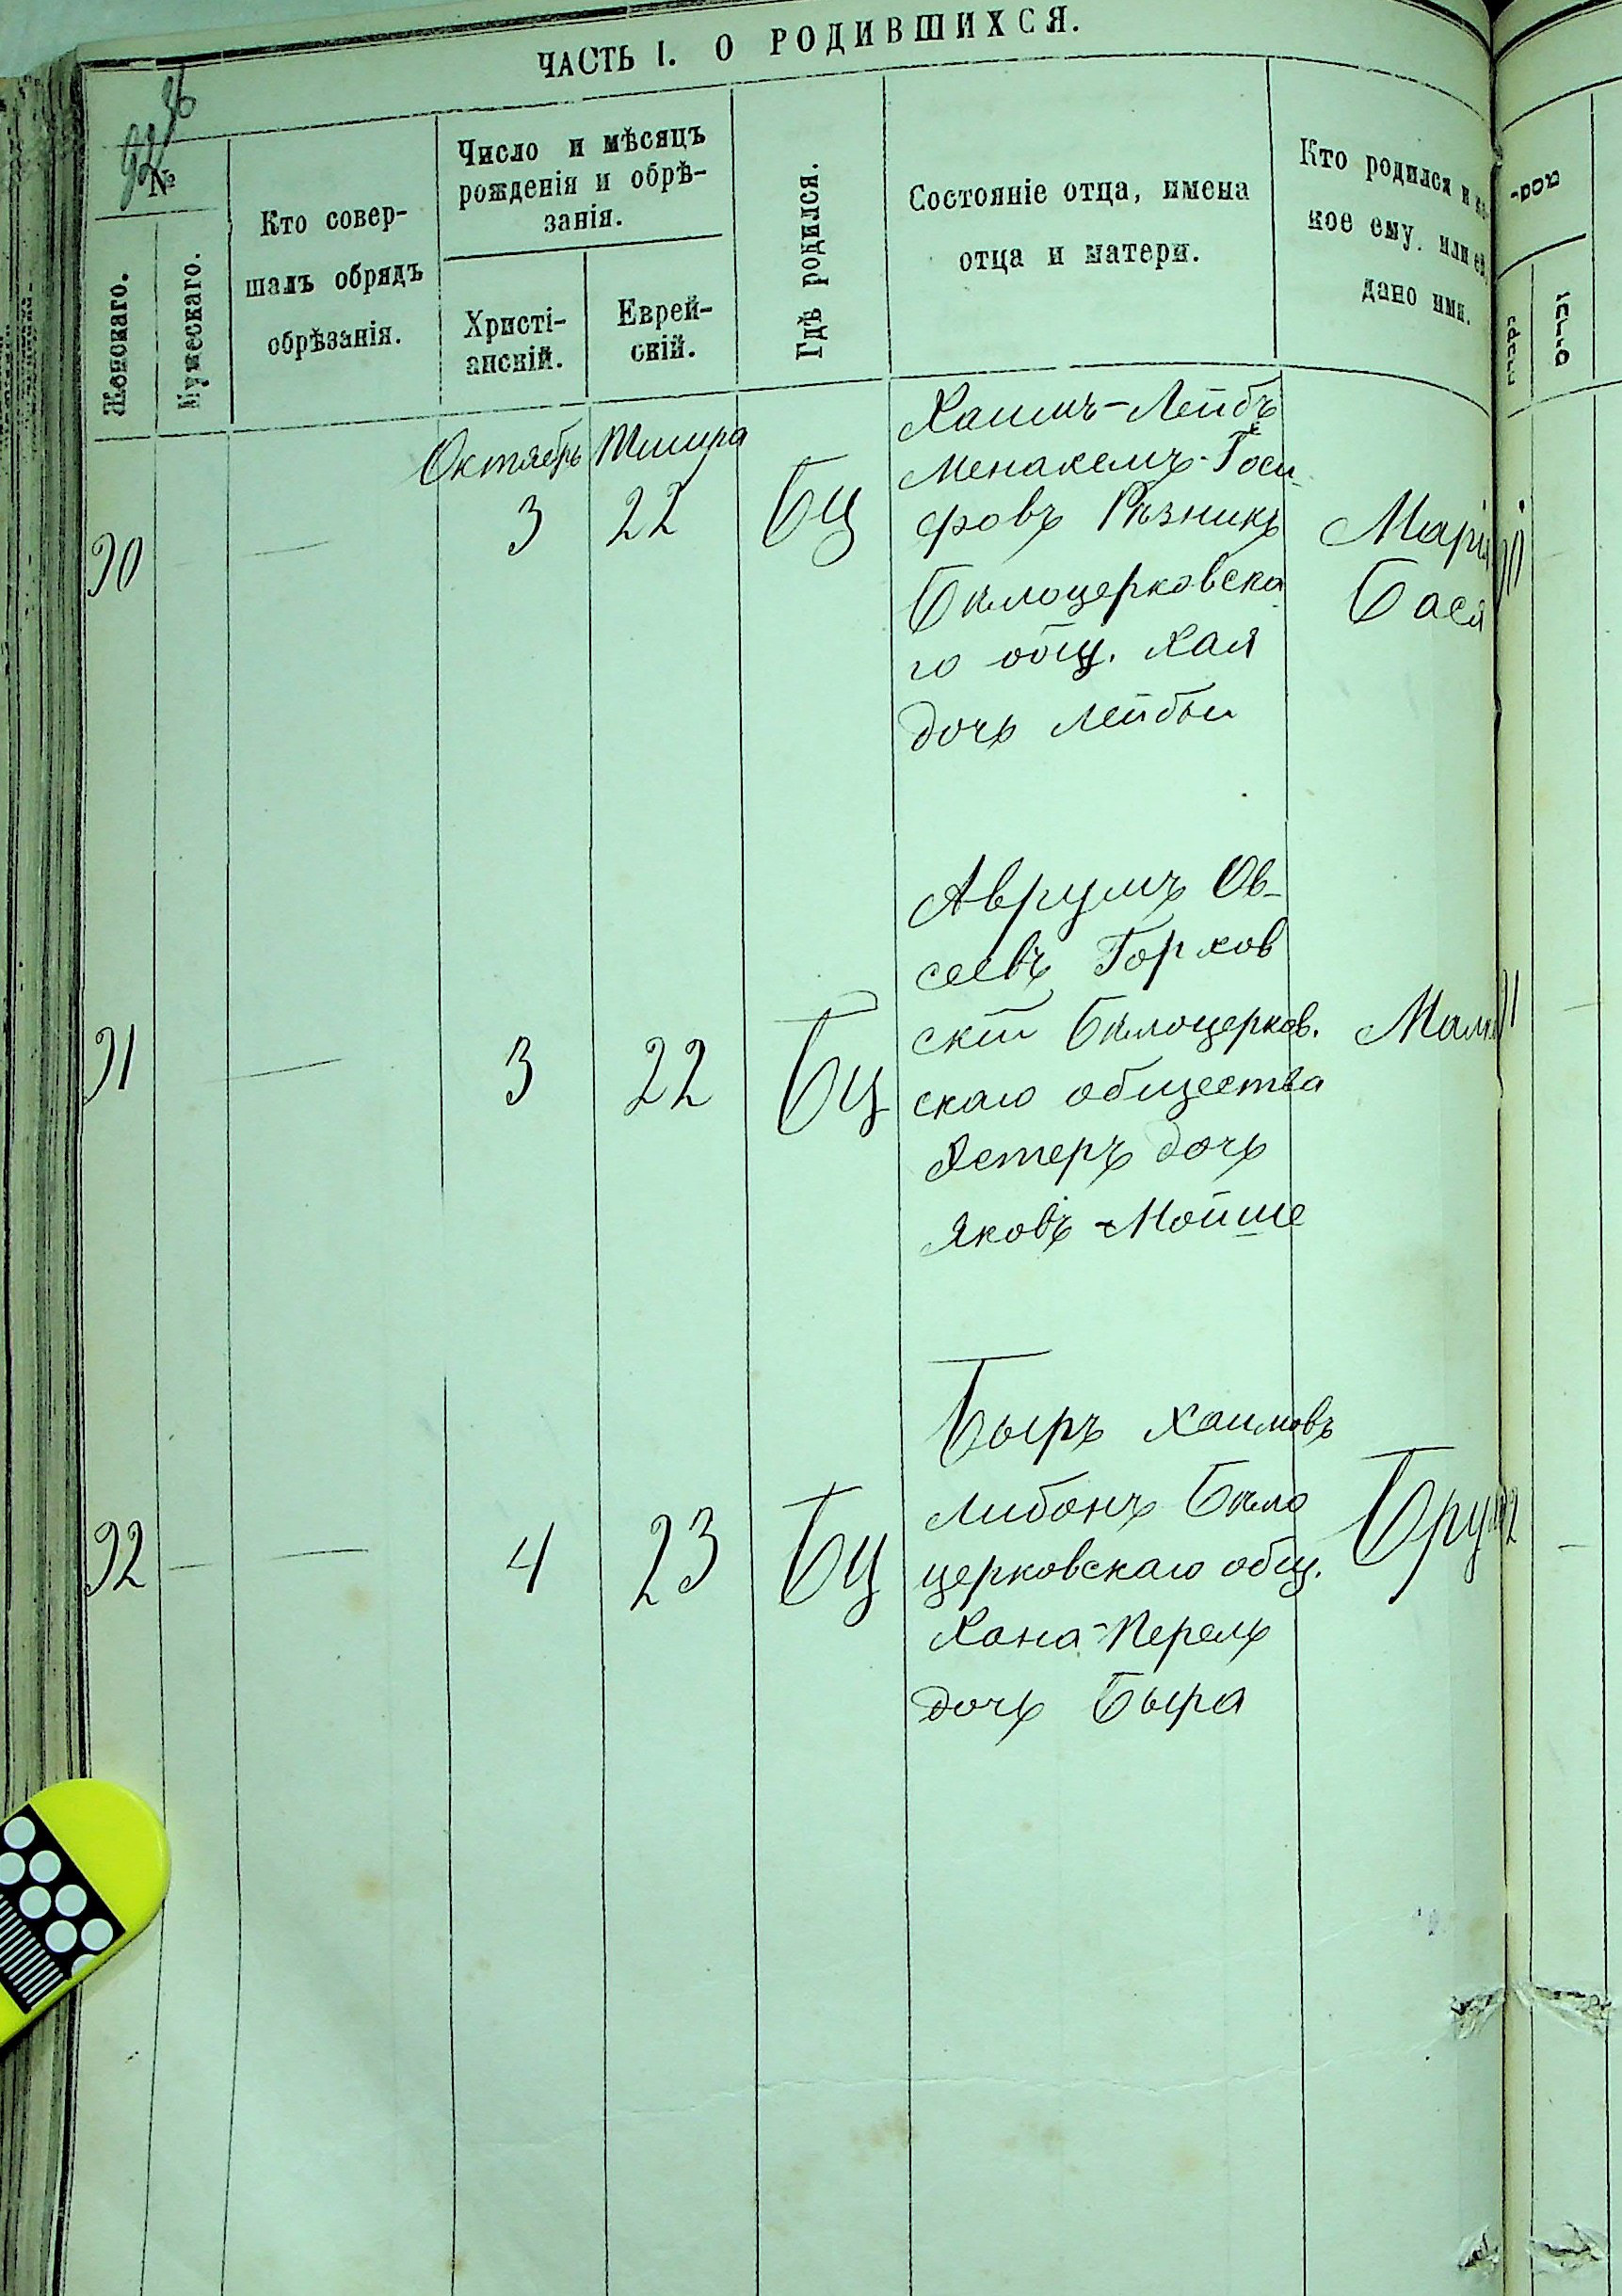 ЧАСТЬ I. О РОДИВШИХСЯ.
№
Женскаго.
Мужескаго.
Кто совер-
шалъ обрядъ
обрѣзанія.
Число и мѣсяцъ
рожденія и обрѣ-
занія.
Христі-
анскій.
Еврей-
скій.
Гдѣ родился.
Состояніе отца, имена
отца и матери.
Кто родился и ка-
кое ему или ей
дано имя.
Октябрь Тишра
90 — 3 22 БЦ
Хаимъ-Лейбъ
Менахемъ-Іоси
фовъ Рѣзникъ
Бѣлоцерковска
го общ. Хая
дочь Лейбы
Марія
Бася
91 — 3 22 БЦ
Аврумъ Ов-
сеевъ Горхов
скій Бѣлоцерков.
скаго общества
Эстеръ дочь
Яковъ-Мойше
92 — — 4 23 БЦ
Быръ Хаимовъ
Либонъ Бѣло
церковскаго общ.
Хана-Перель
дочь Быра